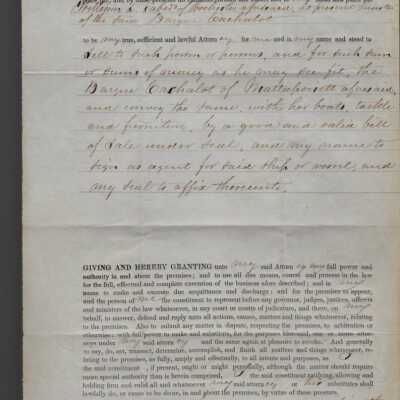 of the said Barque Cachalot
to be my true, sufficient and lawful Attorney for me and in my name and stead to
Sell to such person or persons, and for such sum
or sums of money as he may see fit, the
Barque Cachalot of Mattapoisett aforesaid,
and convey the same, with her boats, tackle
and furniture, by a good and valid bill
of Sale under seal, and my name to
sign as agent for said ship or vessel, and
my seal to affix thereunto.
GIVING AND HEREBY GRANTING unto my said Attorney full power and
authority in and about the premises; and to use all due means, course and process in the law
for the full, effectual and complete execution of the business afore described; and in my
name to make and execute due acquittance and discharge; and for the premises to appear,
and the person of me the constituent to represent before any governor, judges, justices, officers
and ministers of the law whatsoever, in any court or courts of judicature, and there, on my
behalf, to answer, defend and reply unto all actions, causes, matters and things whatsoever, relating
to the premises. Also to submit any matter in dispute, respecting the premises, to arbitration or
otherwise; with full power to make and substitute, for the purposes aforesaid, one or more attor-
neys under my said attorney and the same again at pleasure to revoke. And generally
to say, do, act, transact, determine, accomplish, and finish all matters and things whatsoever, re-
lating to the premises, as fully, amply and effectually, to all intents and purposes, as I
the said constituent, if present, ought or might personally, although the matter should require
more special authority than is herein comprised, I the said constituent ratifying, allowing and
holding firm and valid all and whatsoever my said attorney or his substitutes shall
lawfully do, or cause to be done, in and about the premises, by virtue of these presents.